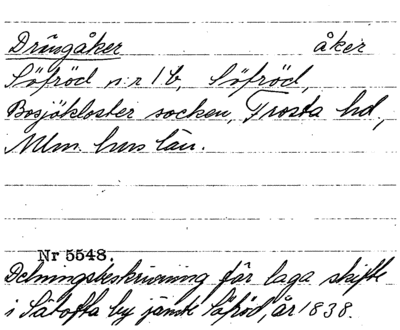 Drängåker åker
Söfröd n:r 1 b, Söfröd,
Bosjökloster socken, Frosta hd,
Mlm. hus län.
Nr 5548.
Delningsbeskrivning för laga skifte
i Sätofta by jämte Söfröd, år 1838.